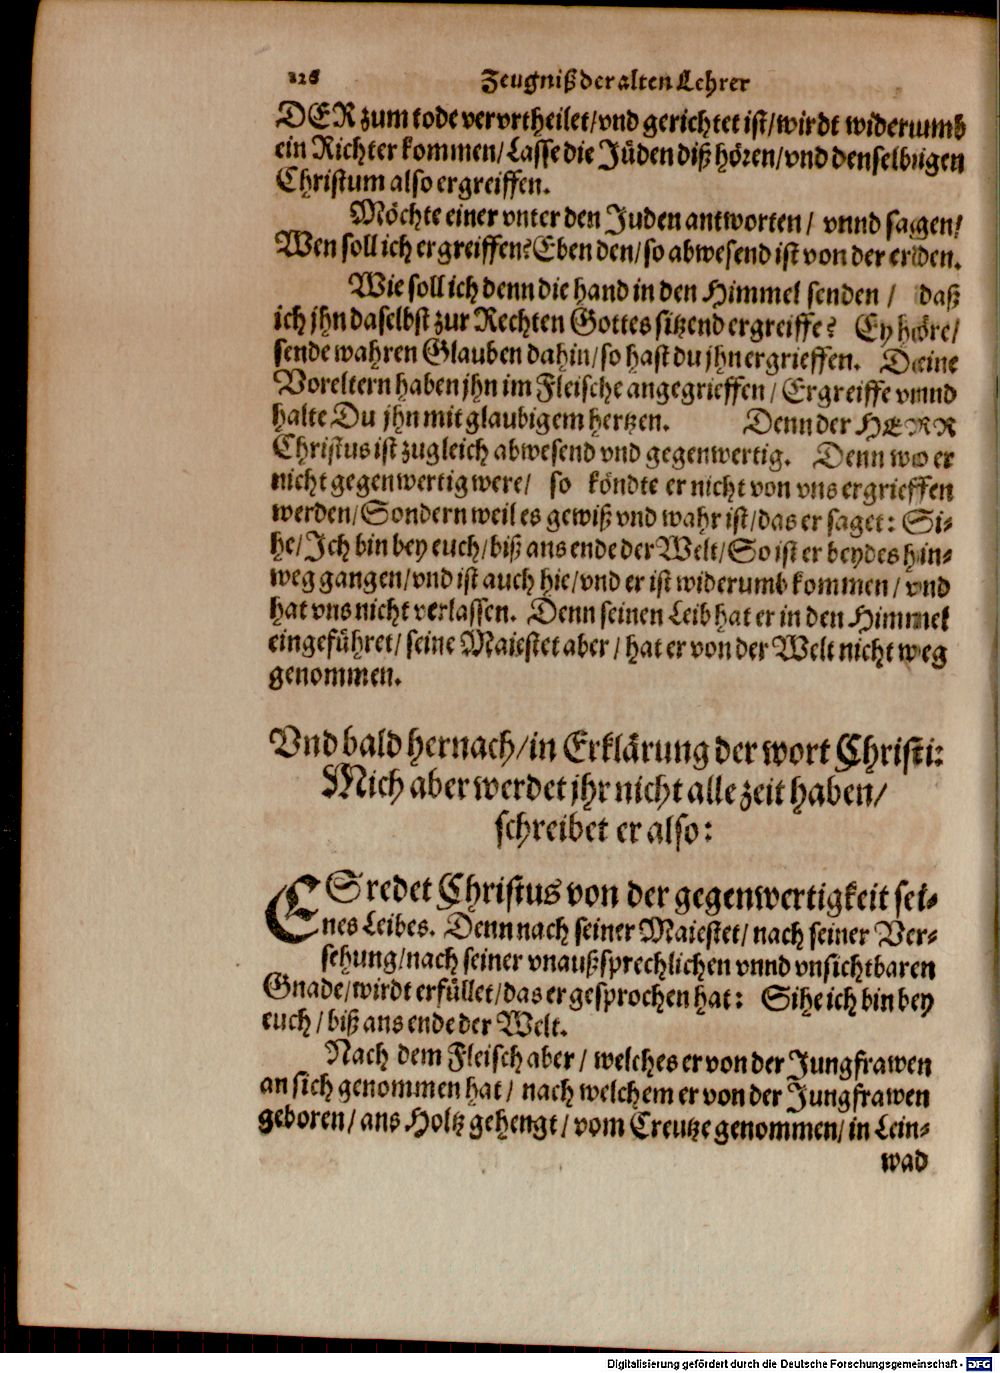 126 Zeugniß der alten Lehrer
DER zum tode vervrtheilet/vnd gerichtet ist/wirdt widerumb
ein Richter kommen/Lasse die Jüden diß hören/vnd denselbigen
Christum also ergreiffen.
Möchte einer vnter den Juden antworten/ vnnd sagen/
Wen soll ich ergreiffen? Eben den/so abwesend ist von der erden.
Wie soll ich denn die hand in den Himmel senden/ daß
ich jhn daselbst zur Rechten Gottes sitzend ergreiffe? Ey höre/
sende wahren Glauben dahin/so hast du jhn ergrieffen. Deine
Voreltern haben jhn im Fleische angegrieffen/Ergreiffe vnnd
halte Du jhn mit glaubigem hertzen. Denn der HERR
Christus ist zugleich abwesend vnd gegenwertig. Denn wo er
nicht gegenwertig were/ so köndte er nicht von vns ergrieffen
werden/Sondern weil es gewiß vnd wahr ist/das er saget: Si-
he/Ich bin bey euch/biß ans ende der Welt/So ist er beydes hin-
weg gangen/vnd ist auch hie/vnd er ist widerumb kommen/vnd
hat vns nicht verlassen. Denn seinen Leib hat er in den Himmel
eingeführet/seine Maiestet aber/hat er von der Welt nicht weg
genommen.
Vnd bald hernach/in Erklärung der wort Christi:
Mich aber werdet jhr nicht alle zeit haben/
schreibet er also:
ES redet Christus von der gegenwertigkeit sei-
nes Leibes. Denn nach seiner Maiestet/nach seiner Ver-
sehung/nach seiner vnaußsprechlichen vnnd vnsichtbaren
Gnade/wirdt erfüllet/das er gesprochen hat: Sihe ich bin bey
euch/biß ans ende der Welt.
Nach dem Fleisch aber/welches er von der Jungfrawen
an sich genommen hat/ nach welchem er von der Jungfrawen
geboren/ans Holtz gehengt/vom Creutze genommen/in Lein-
wad
Digitalisierung gefördert durch die Deutsche Forschungsgemeinschaft - DFG